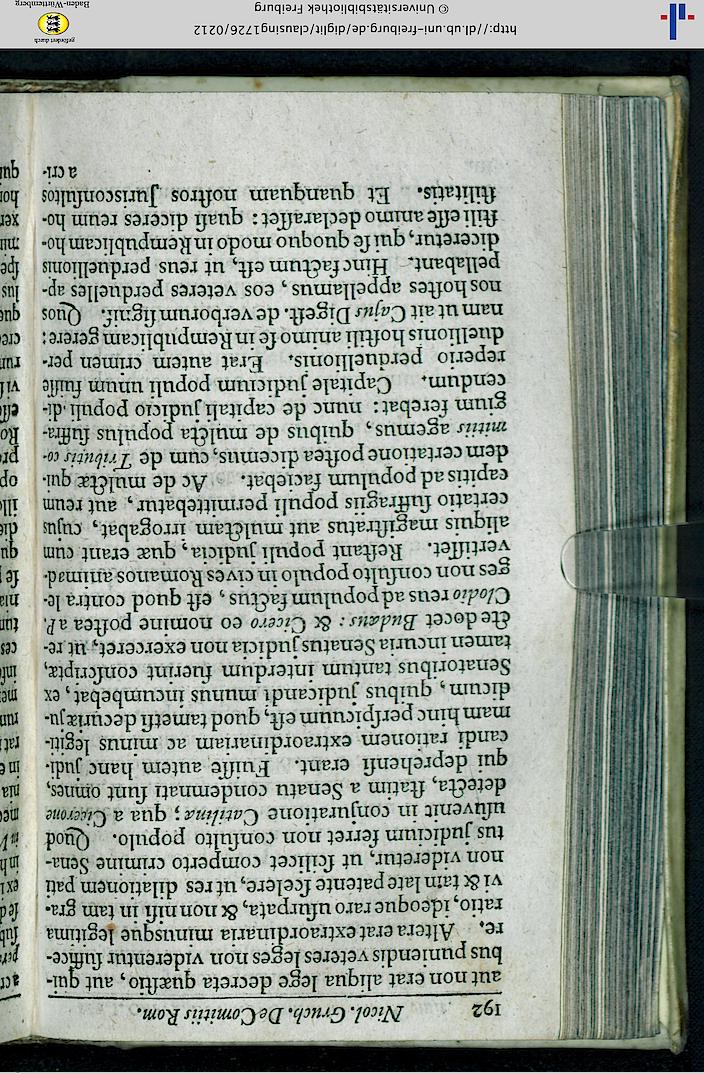 192 Nicol. Gruch. De Comitiis Rom.
aut non erat aliqua lege decreta quæſtio, aut qui-
bus puniendis veteres leges non viderentur ſuffice-
re. Altera erat extraordinaria minusque legitima
ratio, ideoque raro uſurpata, & non niſi in tam gra-
vi & tam late patente ſcelere, ut res dilationem pati
non videretur, ut ſcilicet comperto crimine Sena-
tus judicium ferret non conſulto populo. Quod
uſuvenit in conjuratione Catilinæ; qua a Cicerone
detecta, ſtatim a Senatu condemnati ſunt omnes,
qui deprehenſi erant. Fuiſſe autem hanc judi-
candi rationem extraordinariam ac minus legiti-
mam hinc perſpicuum eſt, quod tametſi decuriæ ju-
dicum, quibus judicandi munus incumbebat, ex
Senatoribus tantum interdum fuerint conſcriptæ,
tamen in curia Senatus judicia non exerceret, ut re-
cte docet Budæus: & Cicero eo nomine poſtea a P.
Clodio reus ad populum factus, eſt quod contra le-
ges non conſulto populo in cives Romanos animad-
vertiſſet. Reſtant populi judicia, quæ erant cum
aliquis magiſtratus aut mulctam irrogabat, cujus
certatio ſuffragiis populi permittebatur, aut reum
capitis ad populum faciebat. Ac de mulctæ qui-
dem certatione poſtea dicemus, cum de Tributis co-
mitiis agemus, quibus de mulcta populus ſuffra-
gium ferebat: nunc de capitali judicio populi di-
cendum. Capitale judicium populi unum fuiſſe
reperio perduellionis. Erat autem crimen per-
duellionis hoſtili animo ſe in Rempublicam gerere:
nam ut ait Cajus Digeſt. de verborum ſignif. Quos
nos hoſtes appellamus, eos veteres perduelles ap-
pellabant. Hinc factum eſt, ut reus perduellionis
diceretur, qui ſe quoquo modo in Rempublicam ho-
ſtili eſſe animo declaraſſet: quaſi diceres reum ho-
ſtilitatis. Et quanquam noſtros Jurisconſultos
a cri-
http://dl.ub.uni-freiburg.de/diglit/clausing1726/0212
© Universitätsbibliothek Freiburg
gefördert durch
Baden-Württemberg